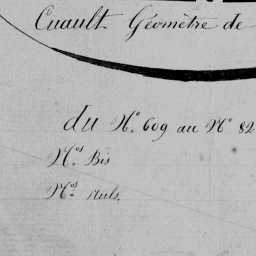 Cuault Géomètre de
du N° 609 au N° 82
N.os Bis
N.os nuls.